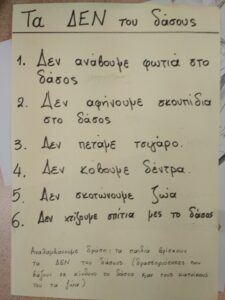 Τα ΔΕΝ του δάσους
1. Δεν ανάβουμε φωτιά στο
δάσος
2. Δεν αφήνουμε σκουπίδια
στο δάσος
3. Δεν πετάμε τσιγάρο.
4. Δεν κόβουμε δέντρα.
5. Δεν σκοτώνουμε ζώα
6. Δεν χτίζουμε σπίτια μες το δάσος
Αναλαμβάνουμε δράση: τα παιδιά βρίσκουν
τα ΔΕΝ του δάσους (δραστηριότητες που
βάζουν σε κίνδυνο το δάσος και τους κατοίκους
του τα ζώα)